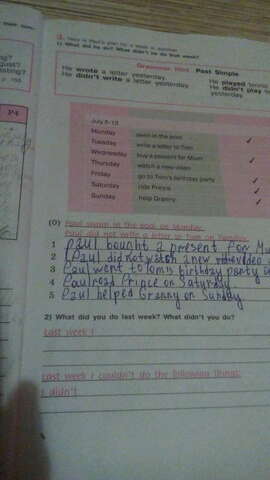 3. Here is Paul's plan for a week in summer.
1) What did he do? What didn't he do that week?
Grammar Hint Past Simple
He wrote a letter yesterday.
He didn't write a letter yesterday.
He played tennis
He didn't play
yesterday.
P4
July 8-13
Monday swim in the pool
Tuesday write a letter to Tom
Wednesday buy a present for Mum
Thursday watch a new video
Friday go to Tom's birthday party
Saturday ride Prince
Sunday help Granny
(0) Paul swam in the pool on Monday.
Paul did not write a letter to Tom on Tuesday.
1 Paul bought a present for
2 Paul did not watch a new video
3 Paul went to Tom's birthday party
4 Paul rode Prince on Saturday
5 Paul helped Granny on Sunday
2) What did you do last week? What didn't you do?
Last week I
Last week I couldn't do the following things:
I didn't